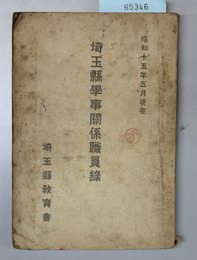 65346
昭和十五年五月現在
埼玉縣學事關係職員錄
埼玉縣敎育會